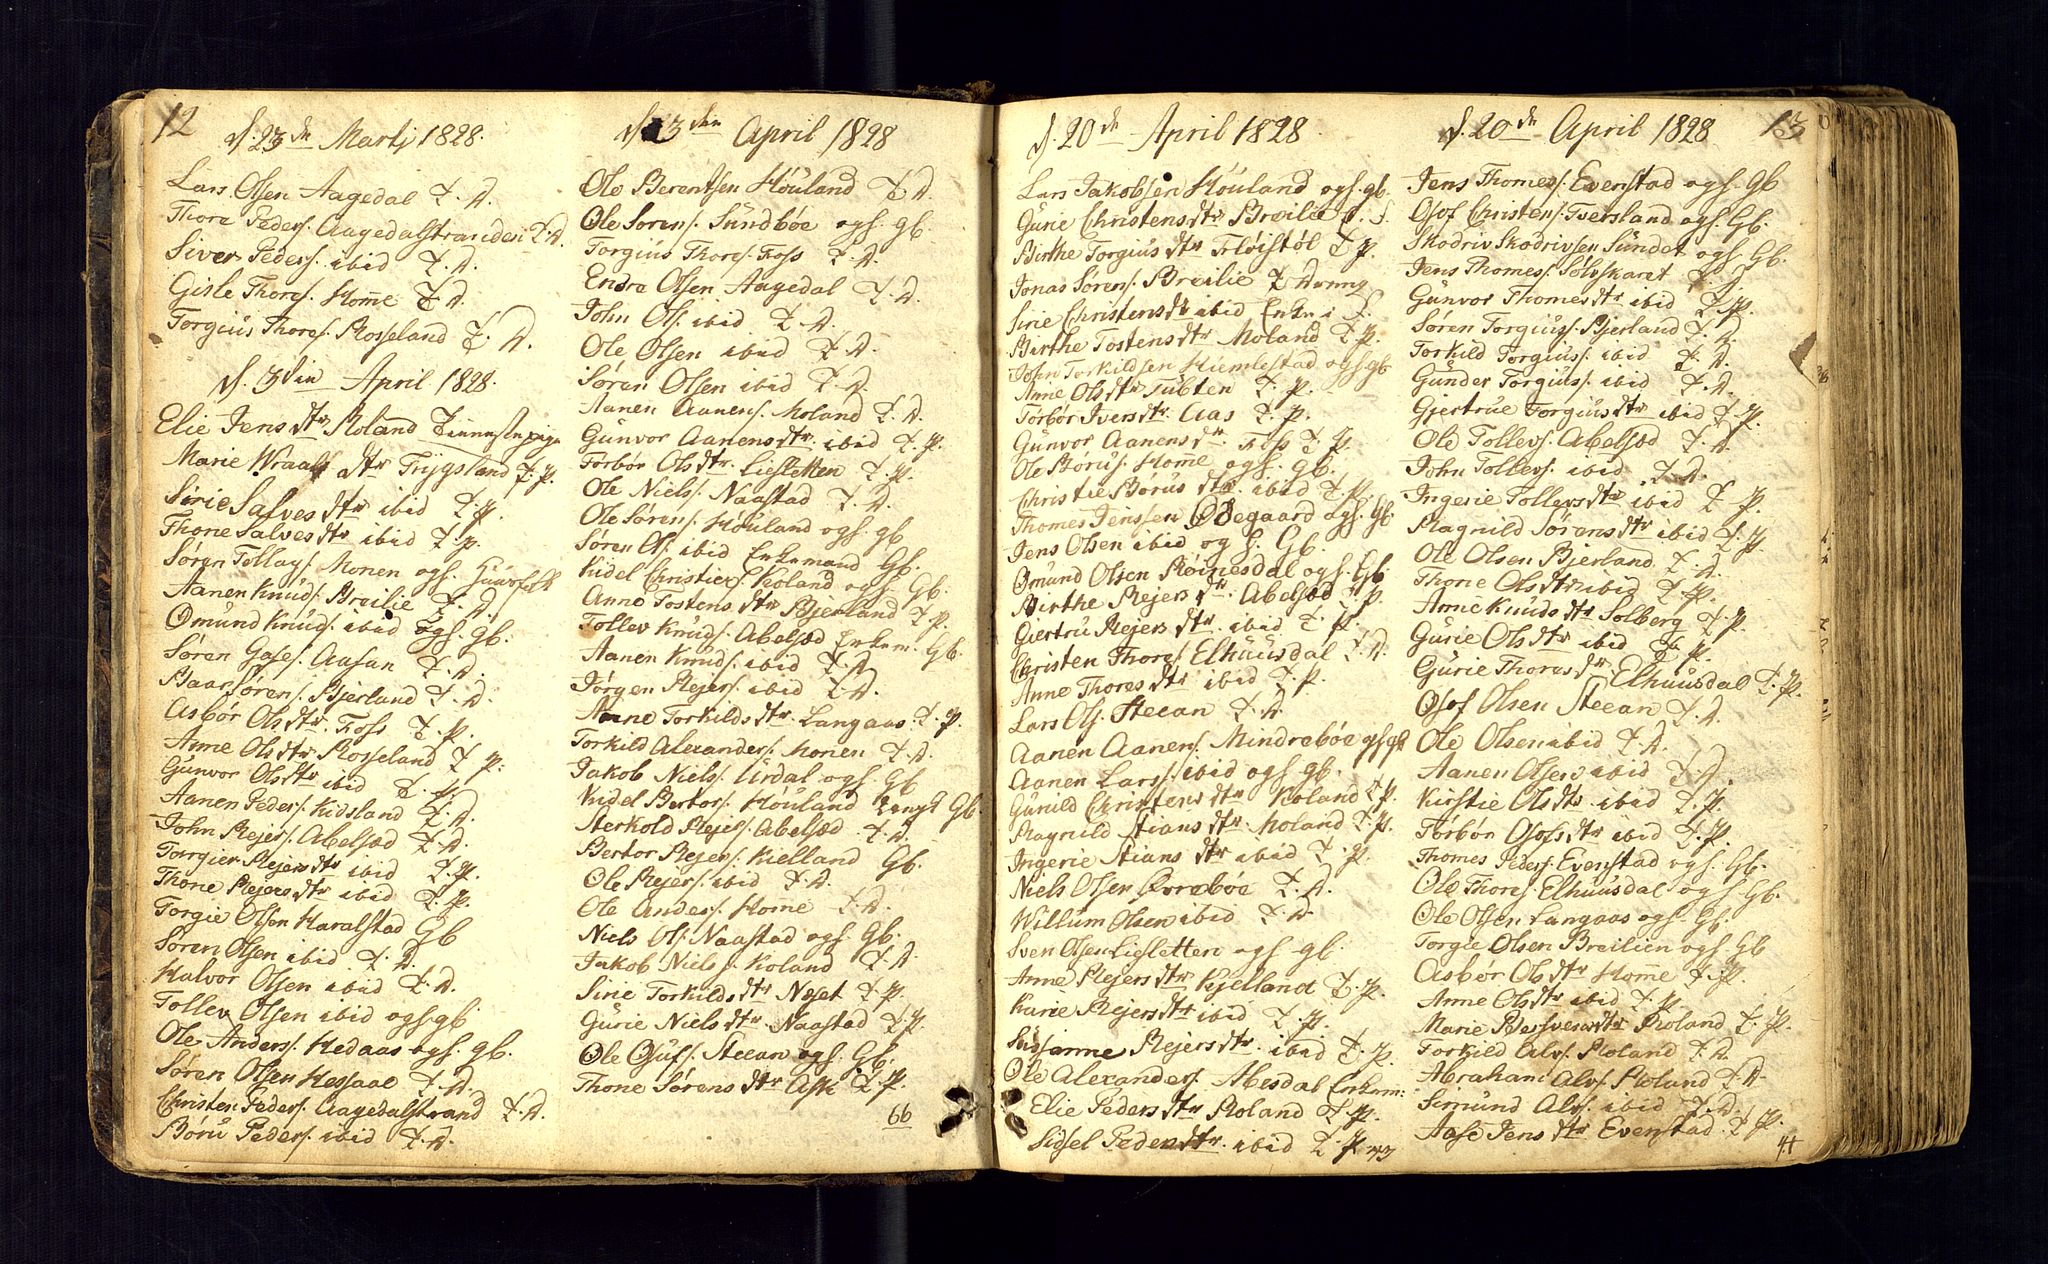 12
d. 23de Martj 1828.
Lars Olsen Aagedal T. D.
Thore Peders. Aagedalstranden T. D.
Siver Peders. ibid T. D.
Gisle Thores. Home T. D.
Torgius Thores. Rosseland T. D.
d. 3die April 1828.
Elie Jens dtr Roland Tienestepige
Marie Wraals dtr Trygsland T. P.
Sirie Salves dtr ibid T. P.
Thone Salves dtr ibid T. P.
Søren Tollags. Monen ogs.
Aanen Knuds. Breilie T. D.
Omund Knuds. ibid ogs. gb.
Søren Gases. Aasan T. D.
Baar Søren. Bjerland T. D.
Asbør Ols dtr. Foss T. P.
Anne Ols dtr Rosseland T. P.
Gunvor Ols dtr ibid T. P.
Aanen Peders. Kidsland T. D.
John Rejers. Abelsæd T. D.
Torgier Rejers dtr ibid T. P.
Thone Rejers dtr ibid T. P.
Torgie Olsen Haralstad Gb
Søren Olsen ibid T. D.
Halvor Olsen ibid T. D.
Tollev Olsen ibid ogs. gb.
Ole Anders. Hedaas ogs. gb.
Søren Olsen Hessaae T. D.
Christen Peders. Aagedalstrand T. D.
Børu Peders. ibid T. D.
d. 3den April 1828
Ole Berentsen Høuland T. D.
Ole Sørens. Sundbøe ogs. gb.
Torgius Thores. Foss T. D.
Endre Olsen Aagedal T. D.
John Ols. ibid T. D.
Ole Olsen ibid T. D.
Søren Olsen ibid T. D.
Aanen Aanens. Moland T. D.
Gunvor Aanens dtr. ibid T. P.
Torbør Ols dtr. Liesletten T. P.
Ole Niels. Naastad T. D.
Ole Sørens. Høuland ogs. gb
Søren Ols. ibid Enkemand Gb.
Kidel Christies. Koland ogs. Gb.
Anne Tostens dtr Bjerland T. P.
Tollev Knuds. Abelsæd Enkem. Gb.
Aanen Knuds. ibid T. D.
Jørgen Rejers. ibid T. D.
Anne Torkilds dtr. Langaas T. P.
Torkild Alexanders. Monen T. D.
Jakob Niels. Urdal ogs. Gb
Kidel Bertors. Høuland Gb.
Sterkold Rejers. Abelsæd T. D.
Bertor Rejers. Kielland Gb.
Ole Rejers. ibid T. D.
Ole Anders. Home T. D.
Niels Ols. Naastad ogs. Gb.
Jakob Niels. Koland T. D.
Sirie Torkilds dtr Næset T. P.
Gurie Niels dtr. Naastad T. P.
Ole Osuls. Steean ogs. Gb.
Thone Sørens dtr Ask T. P.
66
d. 20de April 1828.
Lars Jakobsen Høuland ogs. gb.
Gurie Christens dtr Breilie
Birthe Torgius dtr Fløistøl T. P.
Jonas Sørens. Breilie T Dreng
Sirie Christens dtr ibid Enke i
Birthe Tostens dtr Moland T. P.
John Torkildsen Hiemlestad ogs gb
Anne Ols dtr Tubten T. P.
Torbør Ivers dtr. Aas T. P.
Gunvor Aanens dtr. T. P.
Ole Børus. Home ogs. gb.
Christie Børus dtr. ibid T. P.
Thomes Jenssen Ødegaard ogs. Gb
Jens Olsen ibid ogs. Gb.
Omund Olsen Røinesdal ogs. Gb.
Birthe Rejers dtr. Abelsæd T. P.
Giertru Rejers dtr. ibid T. P.
Christen Thores. Elhuusdal T. D.
Anne Thores dtr ibid T. P.
Lars Ols. Steean T. D.
Aanen Aanens. Mindrebøe ogs gb
Aanen Lars. ibid ogs. gb.
Gunild Christens dtr Koland T. P.
Ragnild Stians dtr. Moland T. P.
Ingerie Stians dtr ibid T. P.
Niels Olsen T. D.
Willum Olsen ibid T. D.
Sven Olsen Liesletten ogs. gb.
Anne Rejers dtr Kjelland T. P.
Karie Rejers dtr ibid T. P.
Susanne Rejers dtr. ibid T. P.
Ole Alexanders. Abesdal Enkem:
Elie Peders dtr Roland T. P.
Sidsel Peders dtr. ibid T. P.
43
d. 20de April 1828
13
Jens Thomes. Evenstad ogs. Gb
Osof Christens. Tversland ogs. Gb.
Skodriv Skodrivsen Sundet ogs. Gb.
Jens Thomes. Sølvskaret
Gunvor Thomes dtr ibid T. P.
Søren Torgius. Bjerland T. D.
Torkild Torgius. ibid T. D.
Gunder Torgius. ibid T. D.
Gjertrue Torgius dtr ibid T. P.
Ole Tollevs. Abelsæd T. D.
John Tollevs. ibid T. D.
Ingerie Tollevs dtr ibid T. P.
Ragnild Sørens dtr ibid T. P.
Ole Olsen Bjerland T. D.
Thone Ols dtr ibid T. P.
Anne Knuds dtr Solberg T. P.
Gurie Ols dtr ibid T. P.
Gurie Thores dtr. Elhuusdal T. P.
Osof Olsen Steean T. D.
Ole Olsen ibid T. D.
Aanen Olsens ibid T. D.
Kirstie Ols dtr. ibid T. P.
Torbør Osofs dtr ibid T. P.
Thomes Peders. Evenstad ogs. Gb.
Ole Thores. Elhuusdal ogs. Gb.
Ole Olsen Langaas ogs. Gb.
Torgie Olsen Breilien ogs. Gb
Asbør Ols dtr Home T. P.
Anne Ols dtr ibid T. P.
Marie dtr Roland T. P.
Torkild Alvs. Roland T. D.
Abraham Alvs. Roland T. D.
Simund Alvs. ibid T. D.
Aase Jens dtr Evenstad T. P.
44